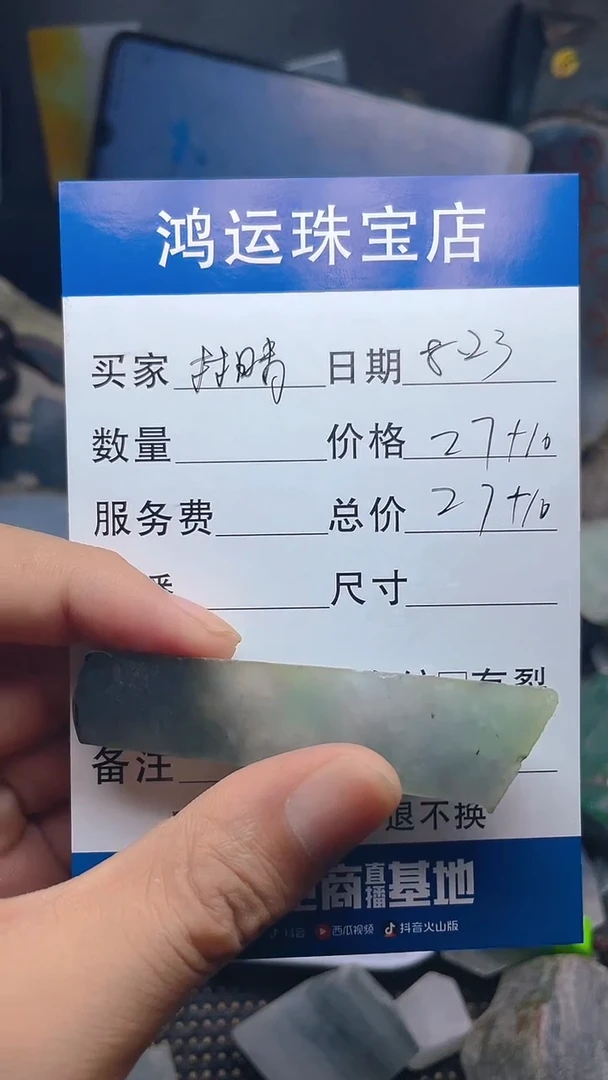 鸿运珠宝店
买家 封晴 日期 8.23
数量 价格 27+10
服务费 总价 27+10
尺寸
有裂
备注
退不换
商直播基地
抖音 西瓜视频 抖音火山版